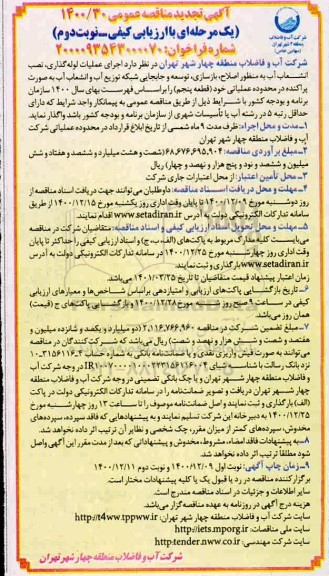 آگهی تجدید مناقصه عمومی ۱۴۰۰/۳۰
(یک مرحله‌ای با ارزیابی کیفی - نوبت دوم)
شماره فراخوان: ۲۰۰۰۰۹۳۵۶۳۰۰۰۰۷۰
شرکت آب و فاضلاب منطقه ۴ شهر تهران
شرکت آب و فاضلاب منطقه چهار شهر تهران در نظر دارد اجرای عملیات لوله‌گذاری، نصب
انشعاب آب به منظور اصلاح، بازسازی، توسعه و جابجایی شبکه توزیع آب و انشعاب آب به صورت
پراکنده در محدوده عملیاتی خود (قطعه پنجم) را بر اساس فهرست بهای سال ۱۴۰۰ سازمان
برنامه و بودجه کشور با شرایط ذیل از طریق مناقصه عمومی به پیمانکار واجد شرایط که دارای
حداقل رتبه ۵ در رشته آب یا تأسیسات شهری از سازمان برنامه و بودجه کشور باشد واگذار نماید.
۱- مدت و محل اجرا: ظرف مدت ۹ ماه شمسی از تاریخ ابلاغ قرارداد در محدوده عملیاتی شرکت
آب و فاضلاب منطقه چهار شهر تهران
۲- مبلغ برآوردی مناقصه: ۶۸,۶۷۶,۶۹۵,۹۰۴ (شصت و هشت میلیارد و ششصد و هفتاد و شش
میلیون و ششصد و نود و پنج هزار و نهصد و چهار) ریال
۳- محل تأمین اعتبار: از محل اعتبارات جاری شرکت
۴- مهلت و محل دریافت اسناد مناقصه: داوطلبان می‌توانند جهت دریافت اسناد مناقصه از
روز دوشنبه مورخ ۱۴۰۰/۱۲/۰۹ تا پایان وقت اداری روز یکشنبه مورخ ۱۴۰۰/۱۲/۱۵ از طریق
سامانه تدارکات الکترونیکی دولت به آدرس www.setadiran.ir اقدام نمایند.
۵- مهلت و محل تحویل اسناد ارزیابی کیفی و اسناد مناقصه: متقاضیان شرکت در مناقصه
می‌بایست کلیه مدارک مربوط به پاکت‌های (الف، ب، ج) و اسناد ارزیابی کیفی را حداکثر تا پایان
وقت اداری روز چهارشنبه مورخ ۱۴۰۰/۱۲/۲۵ در سامانه تدارکات الکترونیکی دولت به آدرس
www.setadiran.ir بارگذاری و ثبت نمایند.
زمان اعتبار پیشنهاد قیمت متقاضیان تا تاریخ ۱۴۰۱/۰۳/۲۵ می‌باشد.
۶- تاریخ بازگشایی پاکت‌های ارزیابی و امتیازدهی براساس شاخص‌ها و معیارهای ارزیابی
کیفی در ساعت ۹ صبح روز مورخ ۱۴۰۰/۱۲/۲۸ و بازگشایی پاکت‌های ج (قیمت)
همان روز می‌باشد.
۷- مبلغ تضمین شرکت در مناقصه ۲,۱۱۶,۷۶۶,۹۶۰ (دو میلیارد و یکصد و شانزده میلیون و
هفتصد و شصت و شش هزار و نهصد و شصت) ریال می‌باشد که شرکت‌کنندگان در مناقصه
می‌توانند به صورت فیش واریزی نقدی و یا ضمانت‌نامه بانکی به شماره حساب
نزد بانک رسالت با شناسه شبای در وجه شرکت آب
و فاضلاب منطقه چهار شهر تهران و یا چک بانکی تضمینی در وجه شرکت آب و فاضلاب منطقه
چهار شهر تهران دریافت و تصویر ضمانتنامه را در سامانه تدارکات الکترونیکی دولت در پاکت
(الف) بارگذاری و ثبت نمایند و اصل ضمانت‌نامه موصوف را تا ساعت ۱۳ روز چهارشنبه مورخ
۱۴۰۰/۱۲/۲۵ به دبیرخانه این شرکت تسلیم نمایند و به پیشنهادهایی که فاقد سپرده، سپرده‌های
مخدوش، سپرده‌های کمتر از میزان مقرر، چک شخصی و نظایر آن ترتیب اثر داده نخواهد شد.
۸- به پیشنهادات فاقد امضاء، مشروط، مخدوش و پیشنهاداتی که بعد از مدت مقرر این آگهی واصل
شود مطلقا ترتیب اثر داده نخواهد شد.
۹- زمان چاپ آگهی: نوبت اول ۱۴۰۰/۱۲/۰۹ و نوبت دوم ۱۴۰۰/۱۲/۱۱
برگزارکننده مناقصه در رد یا قبول یک یا کلیه پیشنهادات مختار است.
سایر اطلاعات و جزئیات در اسناد مناقصه مندرج است.
هزینه درج آگهی در روزنامه به عهده مناقصه گزار می‌باشد.
سایت شرکت آب و فاضلاب منطقه چهار شهر تهران: http://t4ww.tppww.ir
سایت ملی مناقصات: http://iets.mporg.ir
سایت شرکت مهندسی: http:tender.nww.co.ir
شرکت آب و فاضلاب منطقه چهار شهر تهران